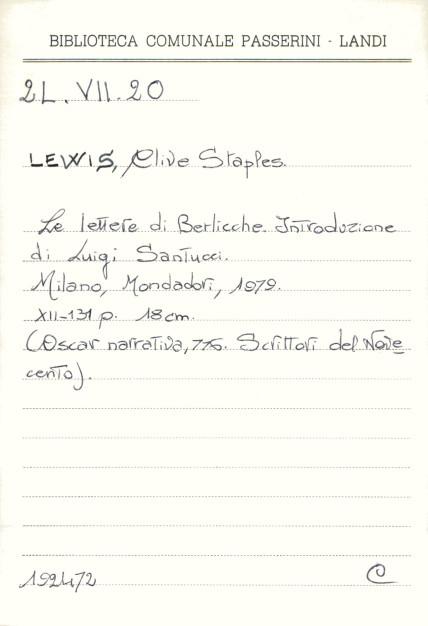 BIBLIOTECA COMUNALE PASSERINI - LANDI
2L. VII. 20
LEWIS, Clive Staples.
Le lettere di Berlicche. Introduzione
di Luigi Santucci.
Milano, Mondadori, 1979.
XII-131 p. 18 cm.
(Oscar narrativa, 775. Scrittori del Nove
cento).
192472
C